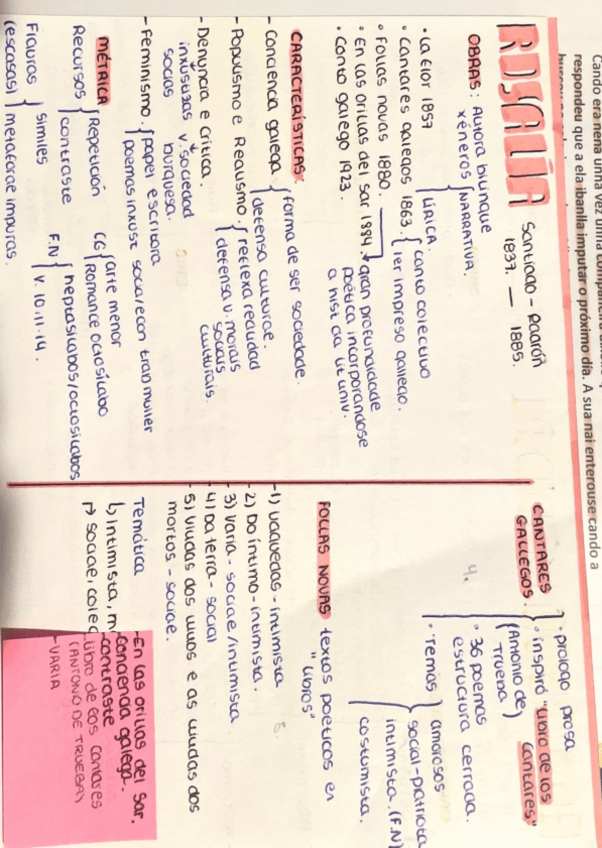 Cando era nena unha vez unha
respondeu que a ela ibanlla imputar o próximo día. A sua nai enterouse cando a
ROSALÍA Santiago - Padrón
1837. — 1885.
OBRAS: Autora bilingüe
xéneros { NARRATIVA.
LÍRICA.
· La flor 1857
· Cantares gallegos 1863. { canto colectivo
1er impreso gallego.
· Follas novas 1880.
· En las orillas del Sar 1884. gran profundidade
poética incorporandose
a hist da lit univ.
· Conto galego 1923.
CARACTERÍSTICAS:
- Conciencia galega { forma de ser sociedade.
defensa culturae.
- Populismo e Realismo. { reflexa realidad
defensa v. morais
sociais
culturais.
- Denuncia e crítica.
inxustizas v. sociedad
socias burguesa.
- Feminismo. { papel escritora
poemas inxust social/econ trab muller
MÉTRICA
Recursos { Repetición
contraste
CG { arte menor
Romance octosílabo
Figuras { símiles
(escasas) metáforae impuras.
F.N { heptasílabos/octosílabos
v. 10.11.14.
CANTARES
GALLEGOS.
· prologo prosa
· inspiró "libro de los
cantares"
(Antonio de)
Trueba
· 36 poemas
estructura cerrada.
· Temas { amorosos
social-patriota
intimista. (F.N)
costumista.
FOLLAS NOVAS textos poeticos en
"libros"
- 1) vaguedas - intimista
- 2) Do íntimo - intimista.
- 3) Varia - sociae/intimista
- 4) Da terra - social
- 5) Viudas dos vivos e as viudas dos
mortos - sociae.
Temática
↳ intimista, m
↳ sociae, colec
- En las orillas del sar.
- conciencia galega.
- contraste
Libro de los cantares
(ANTONIO DE TRUEBA)
- VARIA